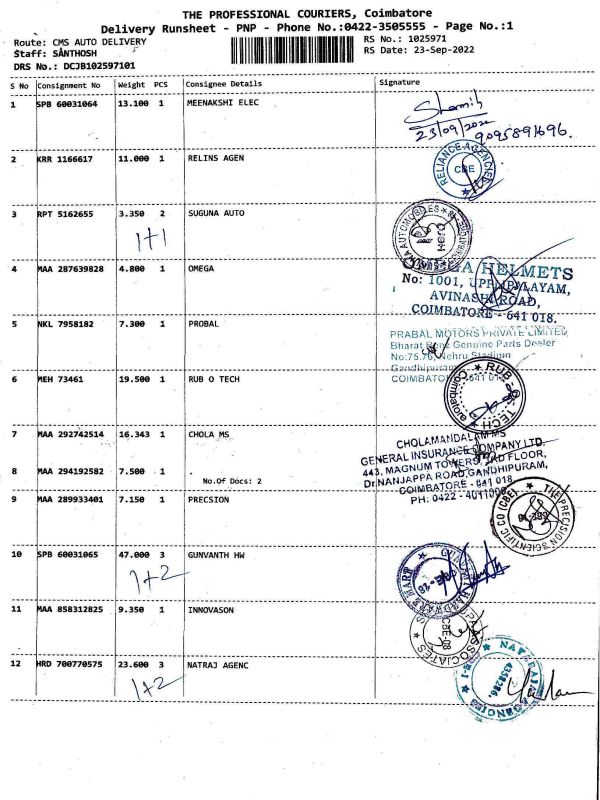 THE PROFESSIONAL COURIERS, Coimbatore
Delivery Runsheet - PNP - Phone No.:0422-3505555 - Page No.:1
Route: CMS AUTO DELIVERY
RS No.: 1025971
Staff: SANTHOSH
RS Date: 23-Sep-2022
DRS No.: DCJB102597101
S No Consignment No Weight PCS Consignee Details Signature
1 SPB 60031064 13.100 1 MEENAKSHI ELEC
23/09/2022
9095891696.
2 KRR 1166617 11.000 1 RELINS AGEN
RELIANCE AGENCIES
CBE
3 RPT 5162655 3.350 2 SUGUNA AUTO
1+1
AUTOMOBILES
Hero
4 MAA 287639828 4.800 1 OMEGA
OMEGA HELMETS
No: 1001, UPPILIPALAYAM,
AVINASHI ROAD,
COIMBATORE - 641 018.
5 NKL 7958182 7.300 1 PROBAL
PRABAL MOTORS PRIVATE LIMITED
Bharat Benz Genuine Parts Dealer
No:75.76, Nehru Stadium
Gandhipuram
COIMBATORE - 641 018
6 MEH 73461 19.500 1 RUB O TECH
RUB-O-TECH
Coimbatore
7 MAA 292742514 16.343 1 CHOLA MS
CHOLAMANDALAM MS
GENERAL INSURANCE COMPANY LTD.
443, MAGNUM TOWERS, 3RD FLOOR,
Dr.NANJAPPA ROAD, GANDHIPURAM,
COIMBATORE - 641 018
PH: 0422 -
8 MAA 294192582 7.500 1
No.Of Docs: 2
9 MAA 289933401 7.150 1 PRECSION
THE PRECISION SCIENTIFIC CO (CBE)
10 SPB 60031065 47.000 3 GUNVANTH HW
1+2
HARDWARE MART
11 MAA 858312825 9.350 1 INNOVASON
ASSOCIATES
12 HRD 700770575 23.600 3 NATRAJ AGENC
1+2
NATARAJ AGENCIES